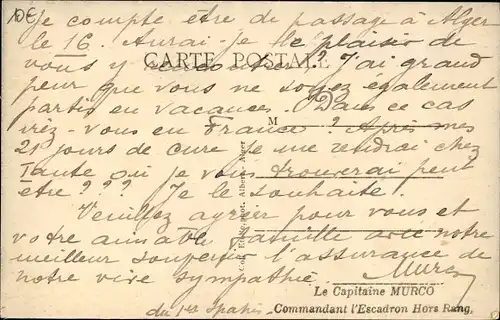 10€
Je compte être de passage à Alger
le 16. Aurai-je le plaisir de
CARTE POSTALE
vous y rencontrer ? J'ai grand
peur que vous ne soyez également
partis en vacances. Dans ce cas
M
irez-vous en France ? Après mes
21 jours de cure je me rendrai chez
Tante où je vous trouverai peut
être ??? Je le souhaite.
Veuillez agréer pour vous et
votre aimable famille avec notre
meilleur souvenir l'assurance de
notre vive sympathie
Murco
Le Capitaine MURCO
du 1er Spahis
Commandant l'Escadron Hors Rang,
Alger